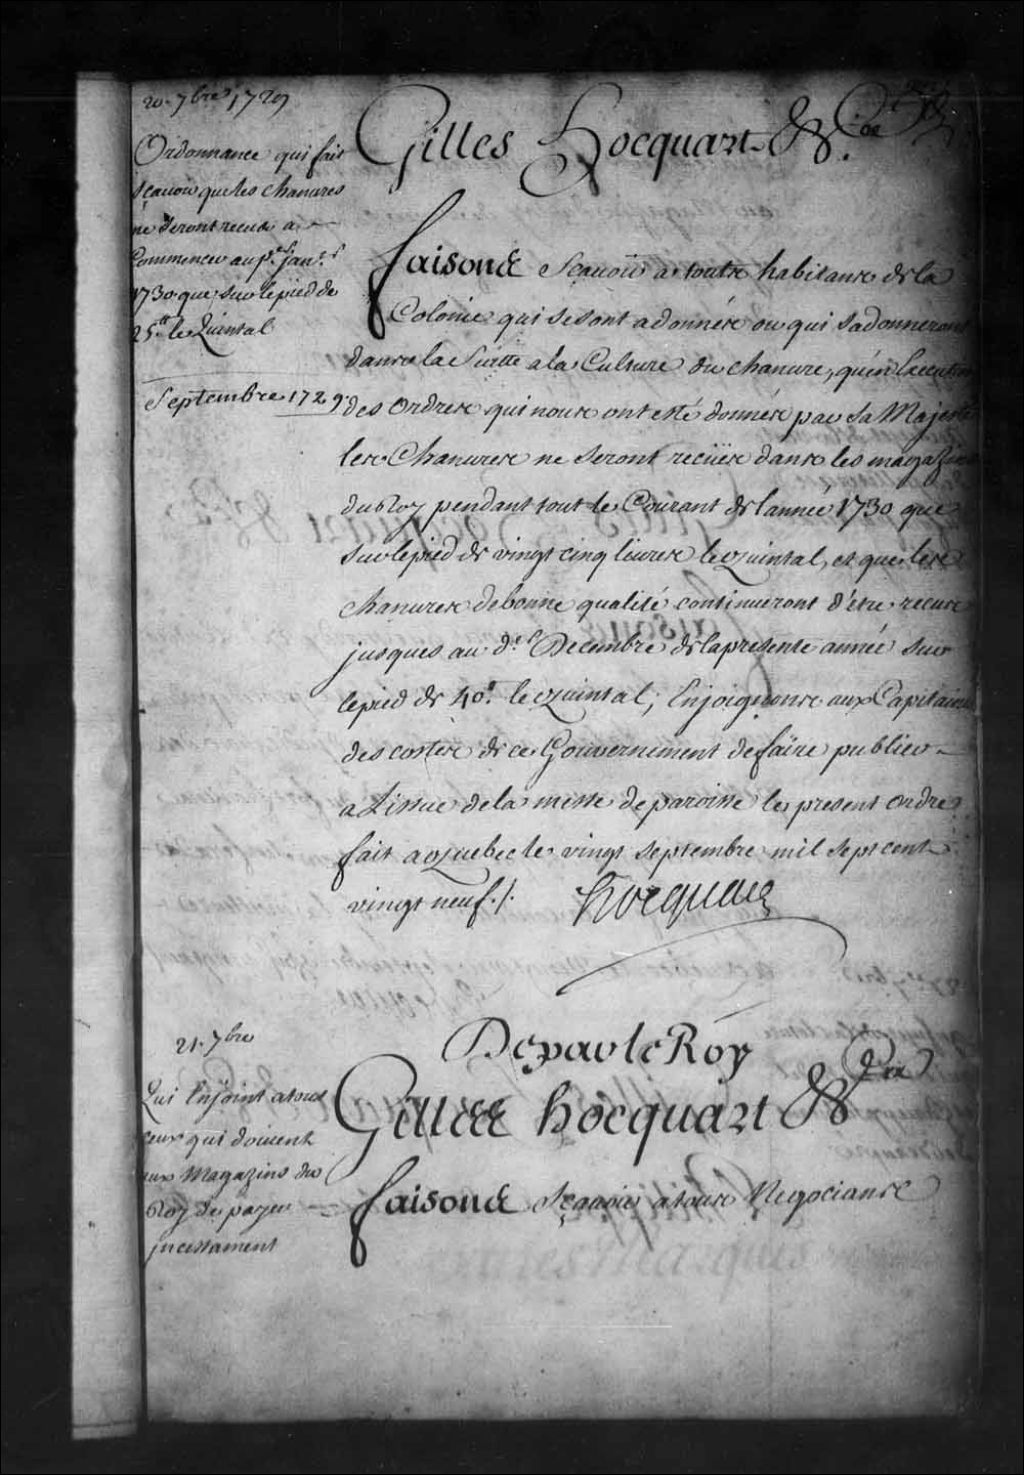 20. 7bre 1729
Ordonnance qui fait
sçauoir que les chanures
ne seront receus a
Commencer au pr. janr.
1730 que sur le pied de
25tt le Quintal
Septembre 1729
Gilles Hocquart &.
faisons Sçauoir a touts habitants de la
Colonie qui se sont adonnés ou qui s'adonneront
dans la Suitte a la Culture du chanure, qu'en Execution
des Ordres qui nous ont esté donnés par Sa Majesté
les Chanures ne seront reçües dans les magazins
du Roy pendant tout le Courant de l'année 1730 que
sur le pied de vingt cinq liures le quintal, et que les
chanures de bonne qualité continueront d'être receus
jusques au dr. Decembre de la presente année sur
le pied de 40tt. le quintal; Enjoignons aux Capitaines
des costes de ce Gouvernement de faire publier
a L'issue de la messe de paroisse le present ordre
fait a Quebec le vingt septembre mil sept cent
vingt neuf./.
hocquart
21. 7bre
Qui Enjoint a tous
ceux qui doivent
aux Magazins du
Roy de payer
incessament
De par le Roy
Gilles hocquart &
faisons Sçauoir a tous Negociants